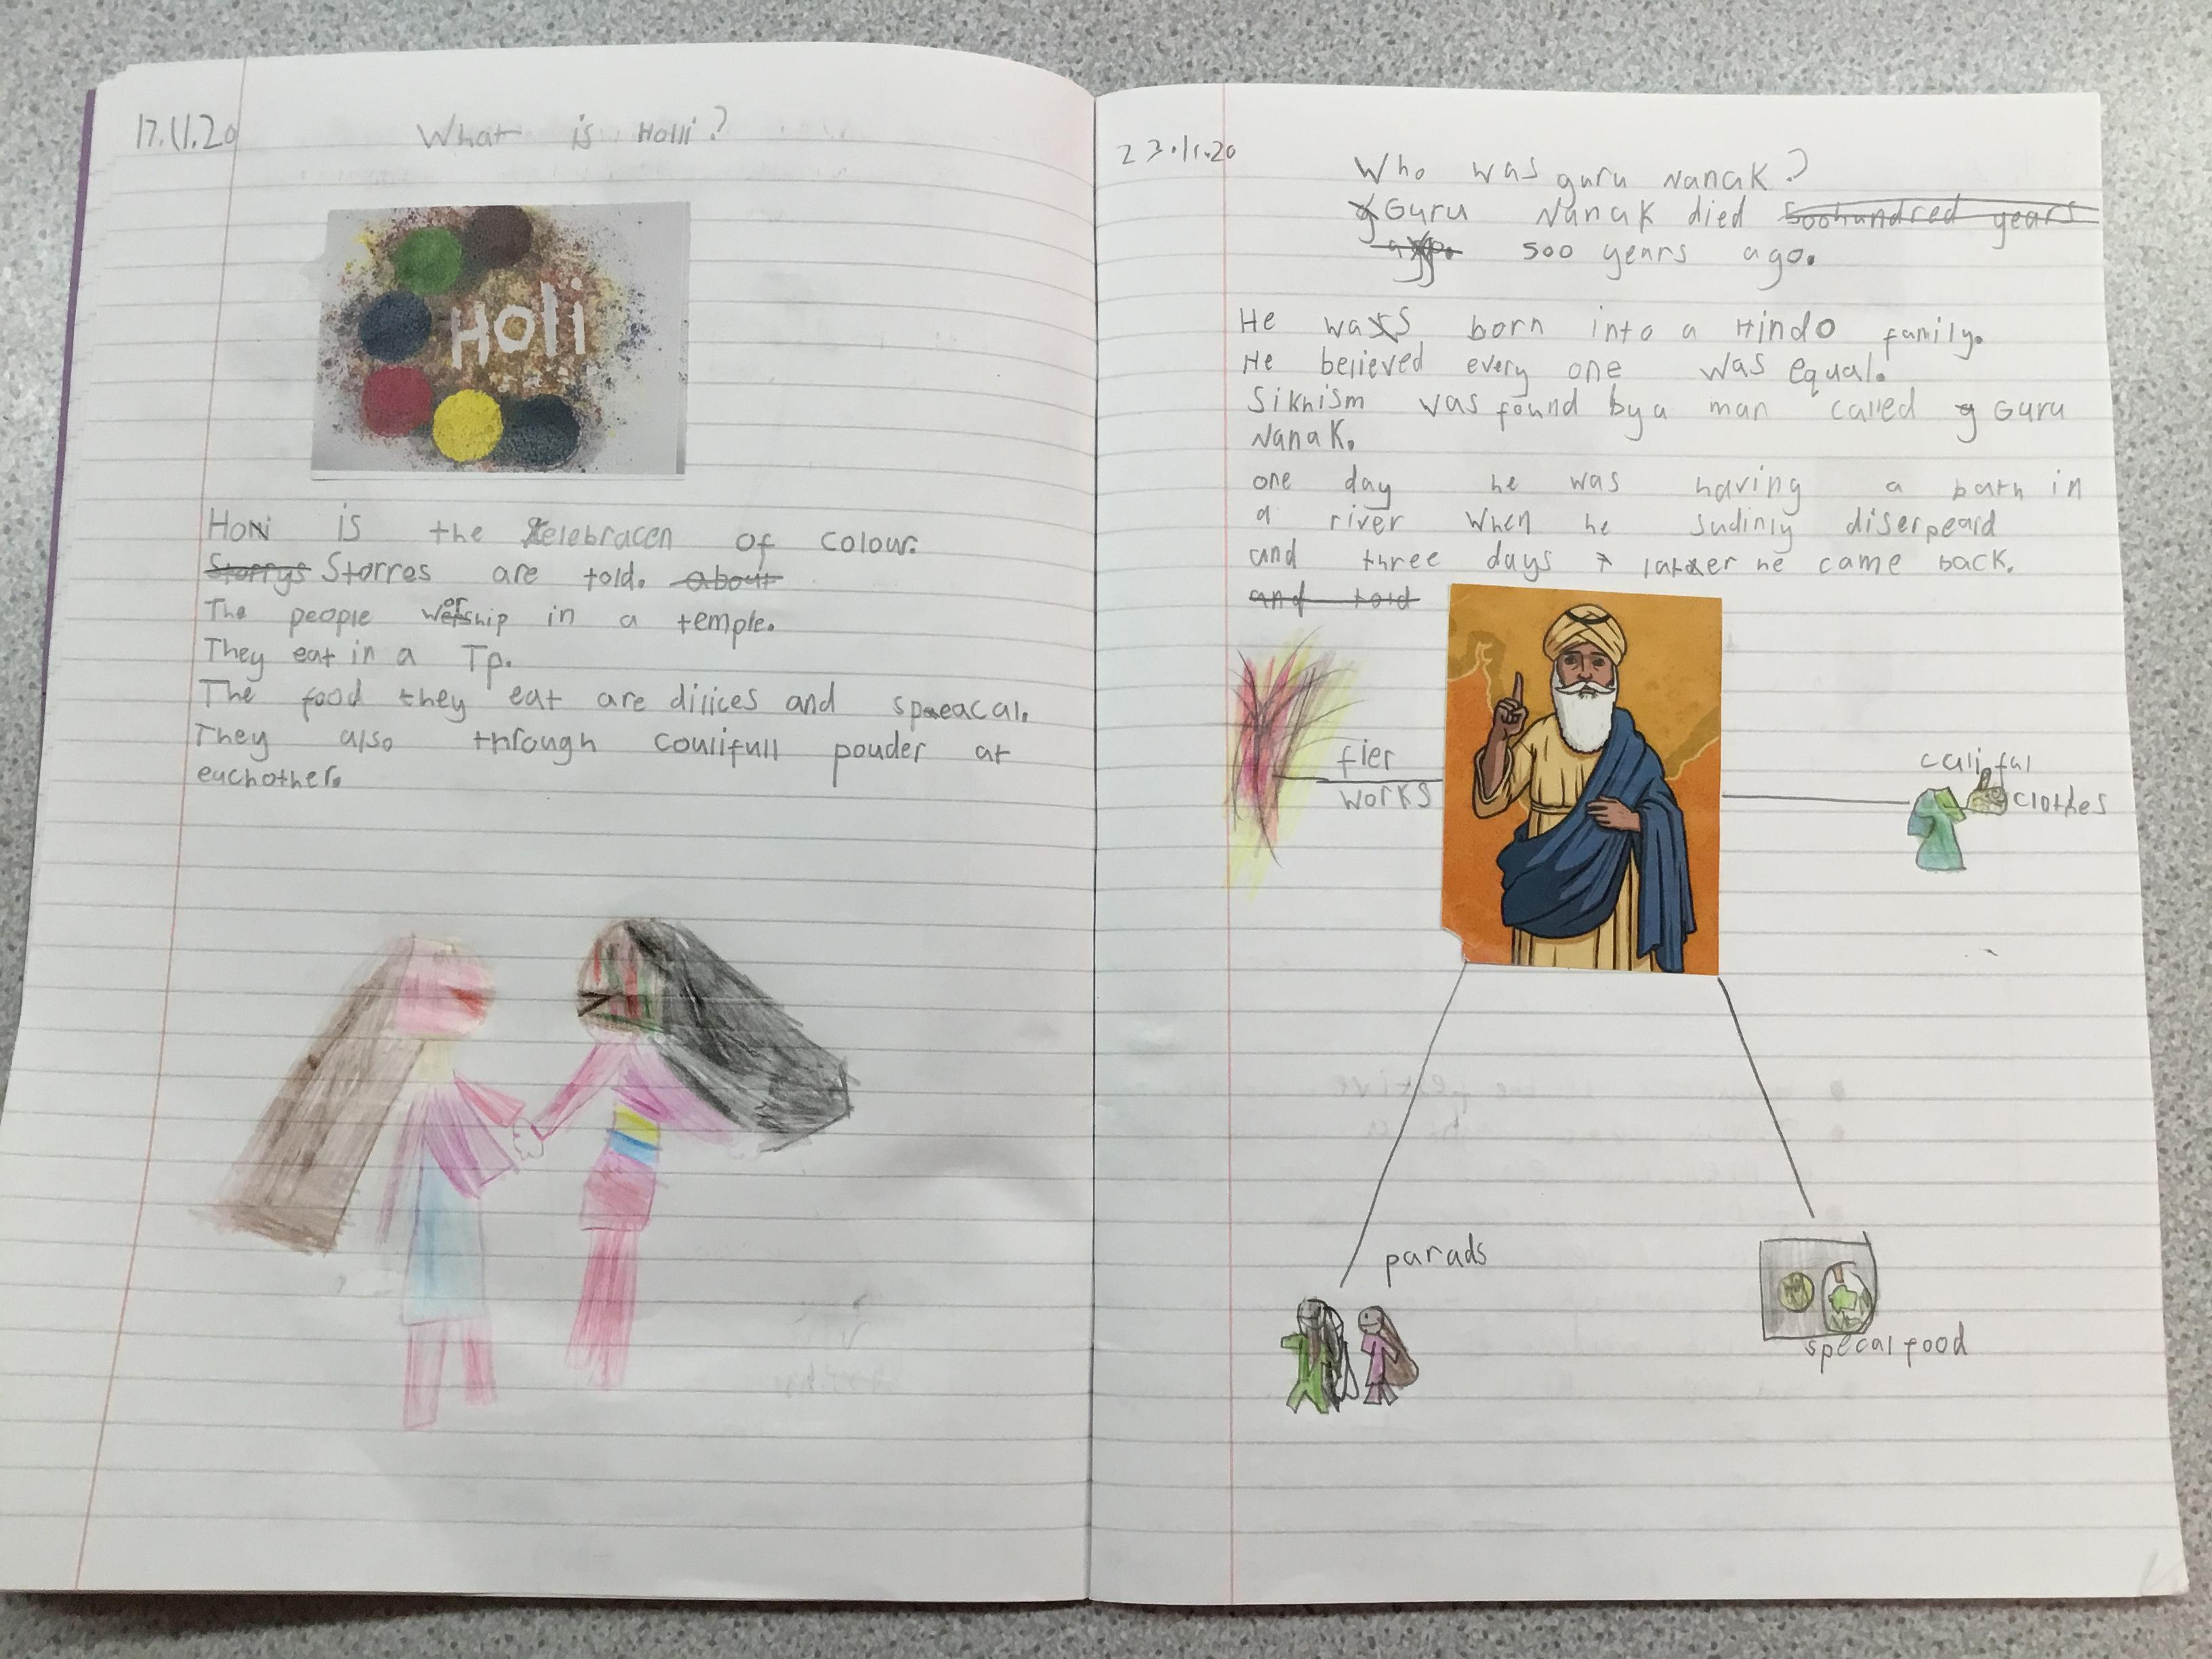 17.11.20
What is Holli?
Holi
Holi is the celebracen of colour.
Storrys Storres are told. about
The people worship in a temple.
They eat in a Tp.
The food they eat are dilices and speacal.
They also through coulifull pouder at
euchother.
23.11.20
Who was guru Nanak?
g Guru Nanak died 500hundred years
ago. 500 years ago.
He was born into a Hindo family.
He believed every one was equal.
Sikhism was found by a man called g Guru
Nanak.
one day he was having a bath in
a river when he sudinly diserpeard
and three days later he came back.
and told
fier
works
califul
clothes
parads
specal food